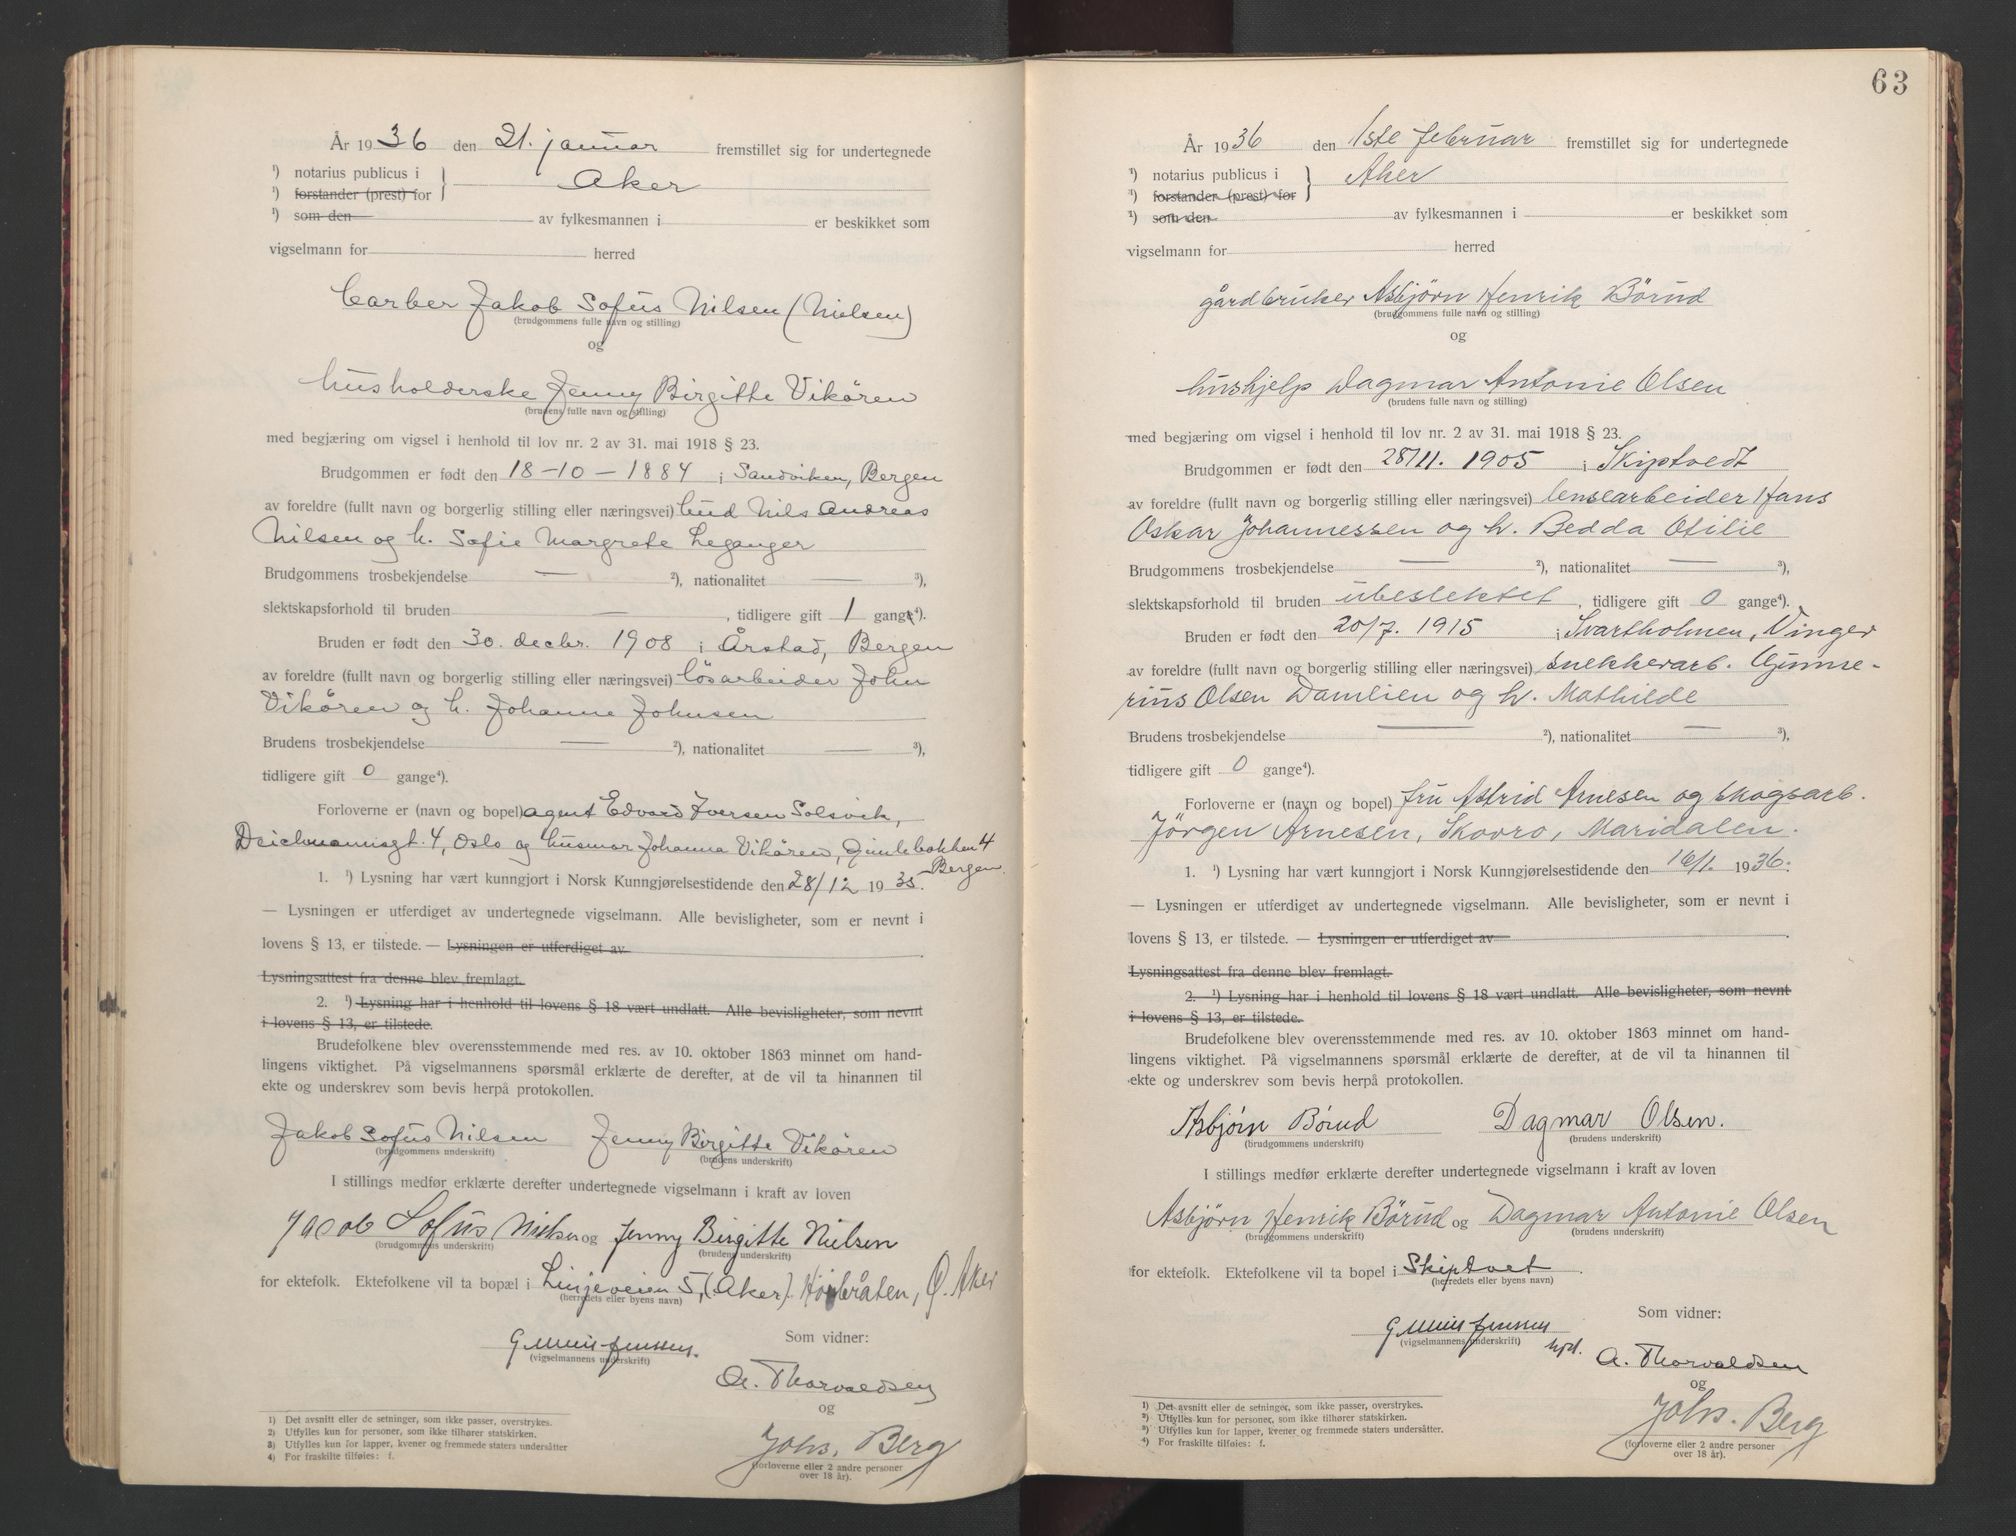 År 1936 den 21. januar fremstillet sig for undertegnede
¹) notarius publicus i
¹) forstander (prest) for } Aker
¹) som den av fylkesmannen i er beskikket som
vigselmann for herred
barber Jakob Sofus Nilsen (Nielsen)
(brudgommens fulle navn og stilling)
og
husholderske Jenny Birgitte Vikören
(brudens fulle navn og stilling)
med begjæring om vigsel i henhold til lov nr. 2 av 31. mai 1918 § 23.
Brudgommen er født den 18-10-1884 i Sandviken, Bergen
av foreldre (fullt navn og borgerlig stilling eller næringsvei) bud Nils Andreas
Nilsen og h. Sofie Margrete Leganger
Brudgommens trosbekjendelse — ²), nationalitet — ³),
slektskapsforhold til bruden — , tidligere gift 1 gang⁴).
Bruden er født den 30. decbr. 1908 i Årstad, Bergen
av foreldre (fullt navn og borgerlig stilling eller næringsvei) lösarbeider John
Vikören og h. Johanne Johnsen
Brudens trosbekjendelse — ²), nationalitet — ³),
tidligere gift 0 gange⁴).
Forloverne er (navn og bopel) agent Edvard Iversen Solsvik,
Deichmannsgt. 4, Oslo og husmor Johanna Vikören, Gimlebakken 4
Bergen.
1. ¹) Lysning har vært kunngjort i Norsk Kunngjørelsestidende den 28/12 1935.
— Lysningen er utferdiget av undertegnede vigselmann. Alle bevisligheter, som er nevnt i
lovens § 13, er tilstede. — Lysningen er utferdiget av
Lysningsattest fra denne blev fremlagt.
2. ¹) Lysning har i henhold til lovens § 18 vært undlatt. Alle bevisligheter, som nevnt
i lovens § 13, er tilstede.
Brudefolkene blev overensstemmende med res. av 10. oktober 1863 minnet om hand-
lingens viktighet. På vigselmannens spørsmål erklærte de derefter, at de vil ta hinannen til
ekte og underskrev som bevis herpå protokollen.
Jakob Sofus Nilsen Jenny Birgitte Vikören
(brudgommens underskrift) (brudens underskrift)
I stillings medfør erklærte derefter undertegnede vigselmann i kraft av loven
Jacob Sofus Nielsen og Jenny Birgitte Nielsen
(brudgommens underskrift) (brudens underskrift)
for ektefolk. Ektefolkene vil ta bopæl i Linjeveien 5, (Aker). Høibråten, Ø. Aker
(herredets eller byens navn)
Som vidner:
(vigselmannens underskrift)
A. Thorvaldsen
og
Johs. Berg
(forloverne eller 2 andre personer
over 18 år).
1) Det avsnitt eller de setninger, som ikke passer, overstrykes.
2) Utfylles kun for personer, som ikke tilhører statskirken.
3) Utfylles kun for lapper, kvener og fremmede staters undersåtter
4) For fraskilte tilføies: f.
63
År 1936 den 1ste februar fremstillet sig for undertegnede
¹) notarius publicus i
¹) forstander (prest) for } Aker
²) som den av fylkesmannen i er beskikket som
vigselmann for herred
gårdbruker Asbjörn Henrik Börud
(brudgommens fulle navn og stilling)
og
hushjelp Dagmar Antonie Olsen
(brudens fulle navn og stilling)
med begjæring om vigsel i henhold til lov nr. 2 av 31. mai 1918 § 23.
Brudgommen er født den 28/11. 1905 i Skiptvedt
av foreldre (fullt navn og borgerlig stilling eller næringsvei) lensearbeider Hans
Oskar Johannessen og h. Bedda Otilie
Brudgommens trosbekjendelse — ²), nationalitet — ³),
slektskapsforhold til bruden ubeslektet , tidligere gift 0 gange⁴).
Bruden er født den 20/7. 1915 i Svartholmen, Vinger
av foreldre (fullt navn og borgerlig stilling eller næringsvei) snekkerarb. Gunne-
rius Olsen Damlien og h. Mathilde
Brudens trosbekjendelse — ²), nationalitet — ³),
tidligere gift 0 gange⁴).
Forloverne er (navn og bopel) fru Astrid Arnesen og skogsarb.
Jörgen Arnesen, Skovro, Maridalen.
1. ¹) Lysning har vært kunngjort i Norsk Kunngjørelsestidende den 16/1. 1936.
— Lysningen er utferdiget av undertegnede vigselmann. Alle bevisligheter, som er nevnt i
lovens § 13, er tilstede. — Lysningen er utferdiget av
Lysningsattest fra denne blev fremlagt.
2. ¹) Lysning har i henhold til lovens § 18 vært undlatt. Alle bevisligheter, som nevnt
i lovens § 13, er tilstede.
Brudefolkene blev overensstemmende med res. av 10. oktober 1863 minnet om hand-
lingens viktighet. På vigselmannens spørsmål erklærte de derefter, at de vil ta hinannen til
ekte og underskrev som bevis herpå protokollen.
Asbjørn Børud Dagmar Olsen.
(brudgommens underskrift) (brudens underskrift)
I stillings medfør erklærte derefter undertegnede vigselmann i kraft av loven
Asbjörn Henrik Börud og Dagmar Antonie Olsen
(brudgommens underskrift) (brudens underskrift)
for ektefolk. Ektefolkene vil ta bopel i Skiptvet
(herredets eller byens navn)
Som vidner:
(vigselmannens underskrift)
A. Thorvaldsen
og
Johs. Berg
(forloverne eller 2 andre personer
over 18 år).
1) Det avsnitt eller de setninger, som ikke passer, overstrykes.
2) Utfylles kun for personer, som ikke tilhører statskirken.
3) Utfylles kun for lapper, kvener og fremmede staters undersåtter.
4) For fraskilte tilføies: f.